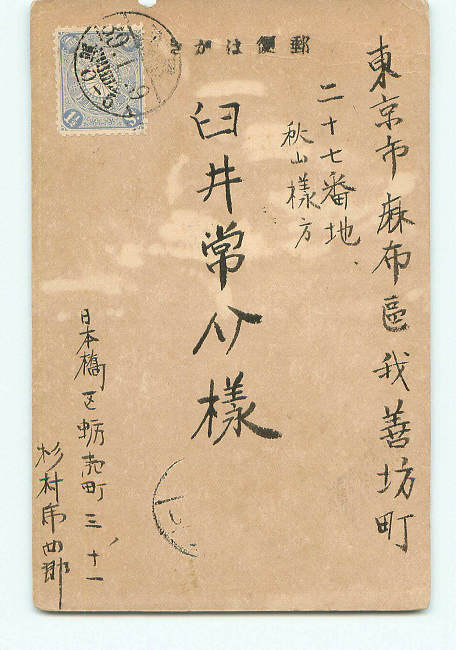 郵便はかき
東京市麻布區我善坊町
二十七番地
秋山様方
臼井常 様
日本橋区蛎売町三ノ十一
杉村 四郎
39
1½